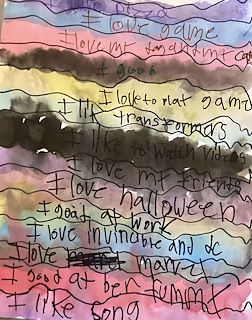 pizza
I love game
I love my dog and my cat
I good
I love to plat game
I lik transformers
I like to watch videos
I love my friends
I love halloween
I goad at work
I love invincible and dc
I love marvel
I good at ber fummy
I like song